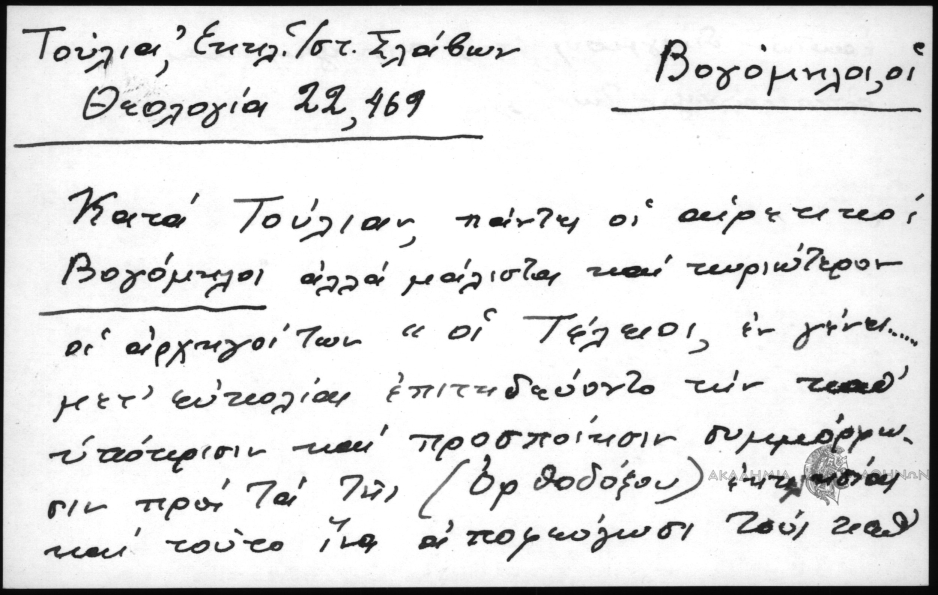 Τούλια, Ἐκκλ. Ἱστ. Σλάβων
Θεολογία 22, 469
Βογόμηλοι, οἱ
Κατά Τούλιαν, πάντες οἱ αἱρετικοί
Βογόμηλοι ἀλλά μάλιστα καί κυριώτερον
οἱ ἀρχηγοί των "οἱ Τέλειοι, ἐν γένει.....
μετ' εὐκολίας ἐπιτηδεύοντο τήν καθ'
ὑπόκρισιν καί προσποίησιν συμμόρφω-
σιν πρός τά τῆς (Ὀρθοδόξου) ἐκκλησίας
καί τοῦτο ἵνα ἀποφεύγωσι τούς καθ'
ΑΚΑΔΗΜΙΑ ΑΘΗΝΩΝ